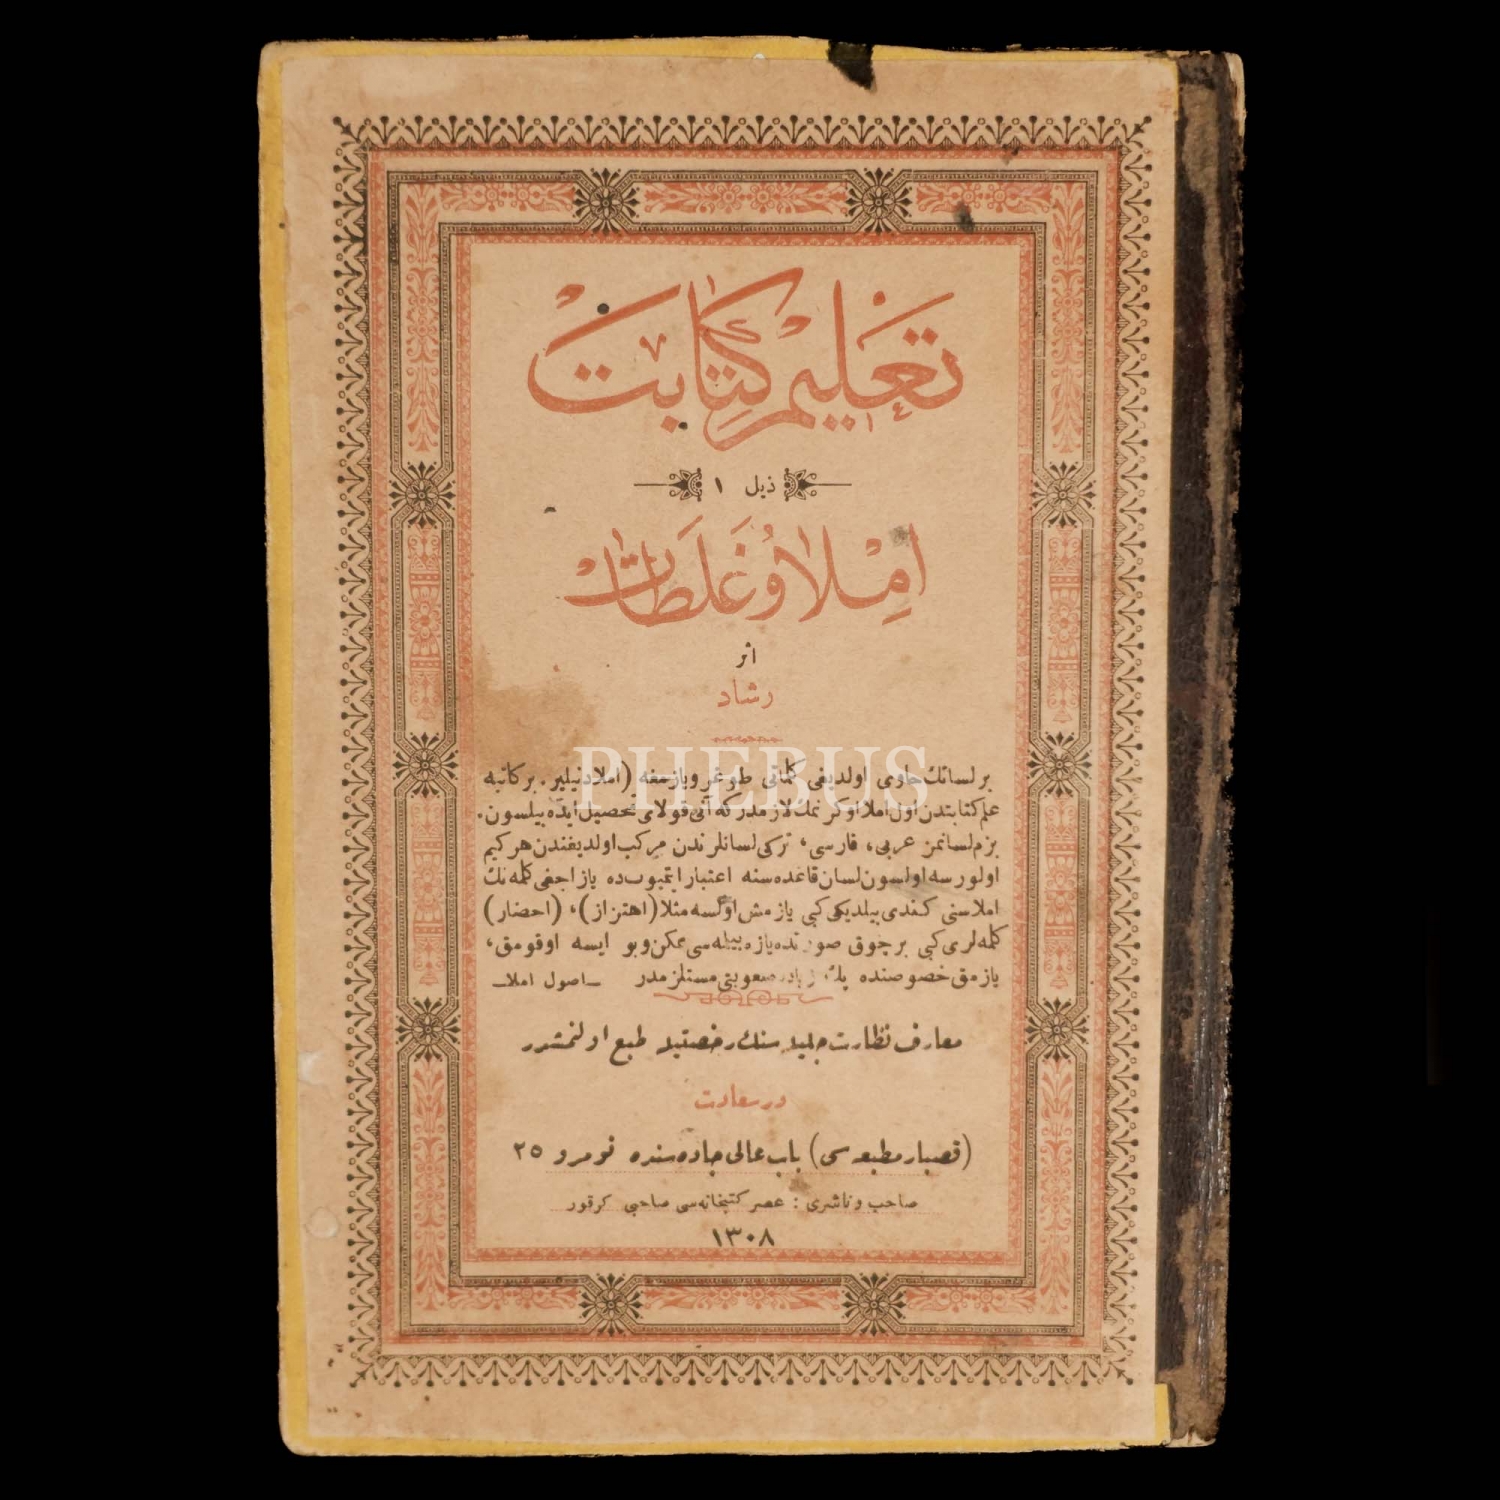 تعليم كتابت
ذيل ١
املا و غلطات
اثر
رشاد
PHEBUS
بر لسانك حاوى اولديغى كلماتى طوغرو يازمغه (املا) دينيلير. بر كاتبه
علم كتابتدن اول املا اوكرنمك لازمدر كه آنى قولاى تحصيل ايده بيلسون.
بزم لسانمز عربى، فارسى، تركى لسانلرندن مركب اولديغندن هر كيم
اولورسه اولسون لسان قاعده سنه اعتبار ايتميوب ده يازاجغى كلمه نك
املاسنى كندى بيلديكى كبى يازمش اولسه مثلا (اهتزاز)، (احضار)
كلمه لرى كبى بر چوق صورتده يازه بيله سى ممكن و بو ايسه اوقومق،
يازمق خصوصنده پك زياده صعوبتى مستلزمدر ـ اصول املا ـ
معارف نظارت جليله سنك رخصتيله طبع اولنمشدر
در سعادت
(قصبار مطبعه سى) باب عالى جاده سنده نومرو ٢٥
صاحب و ناشرى : عصر كتبخانه سى صاحبى كرقور
١٣٠٨